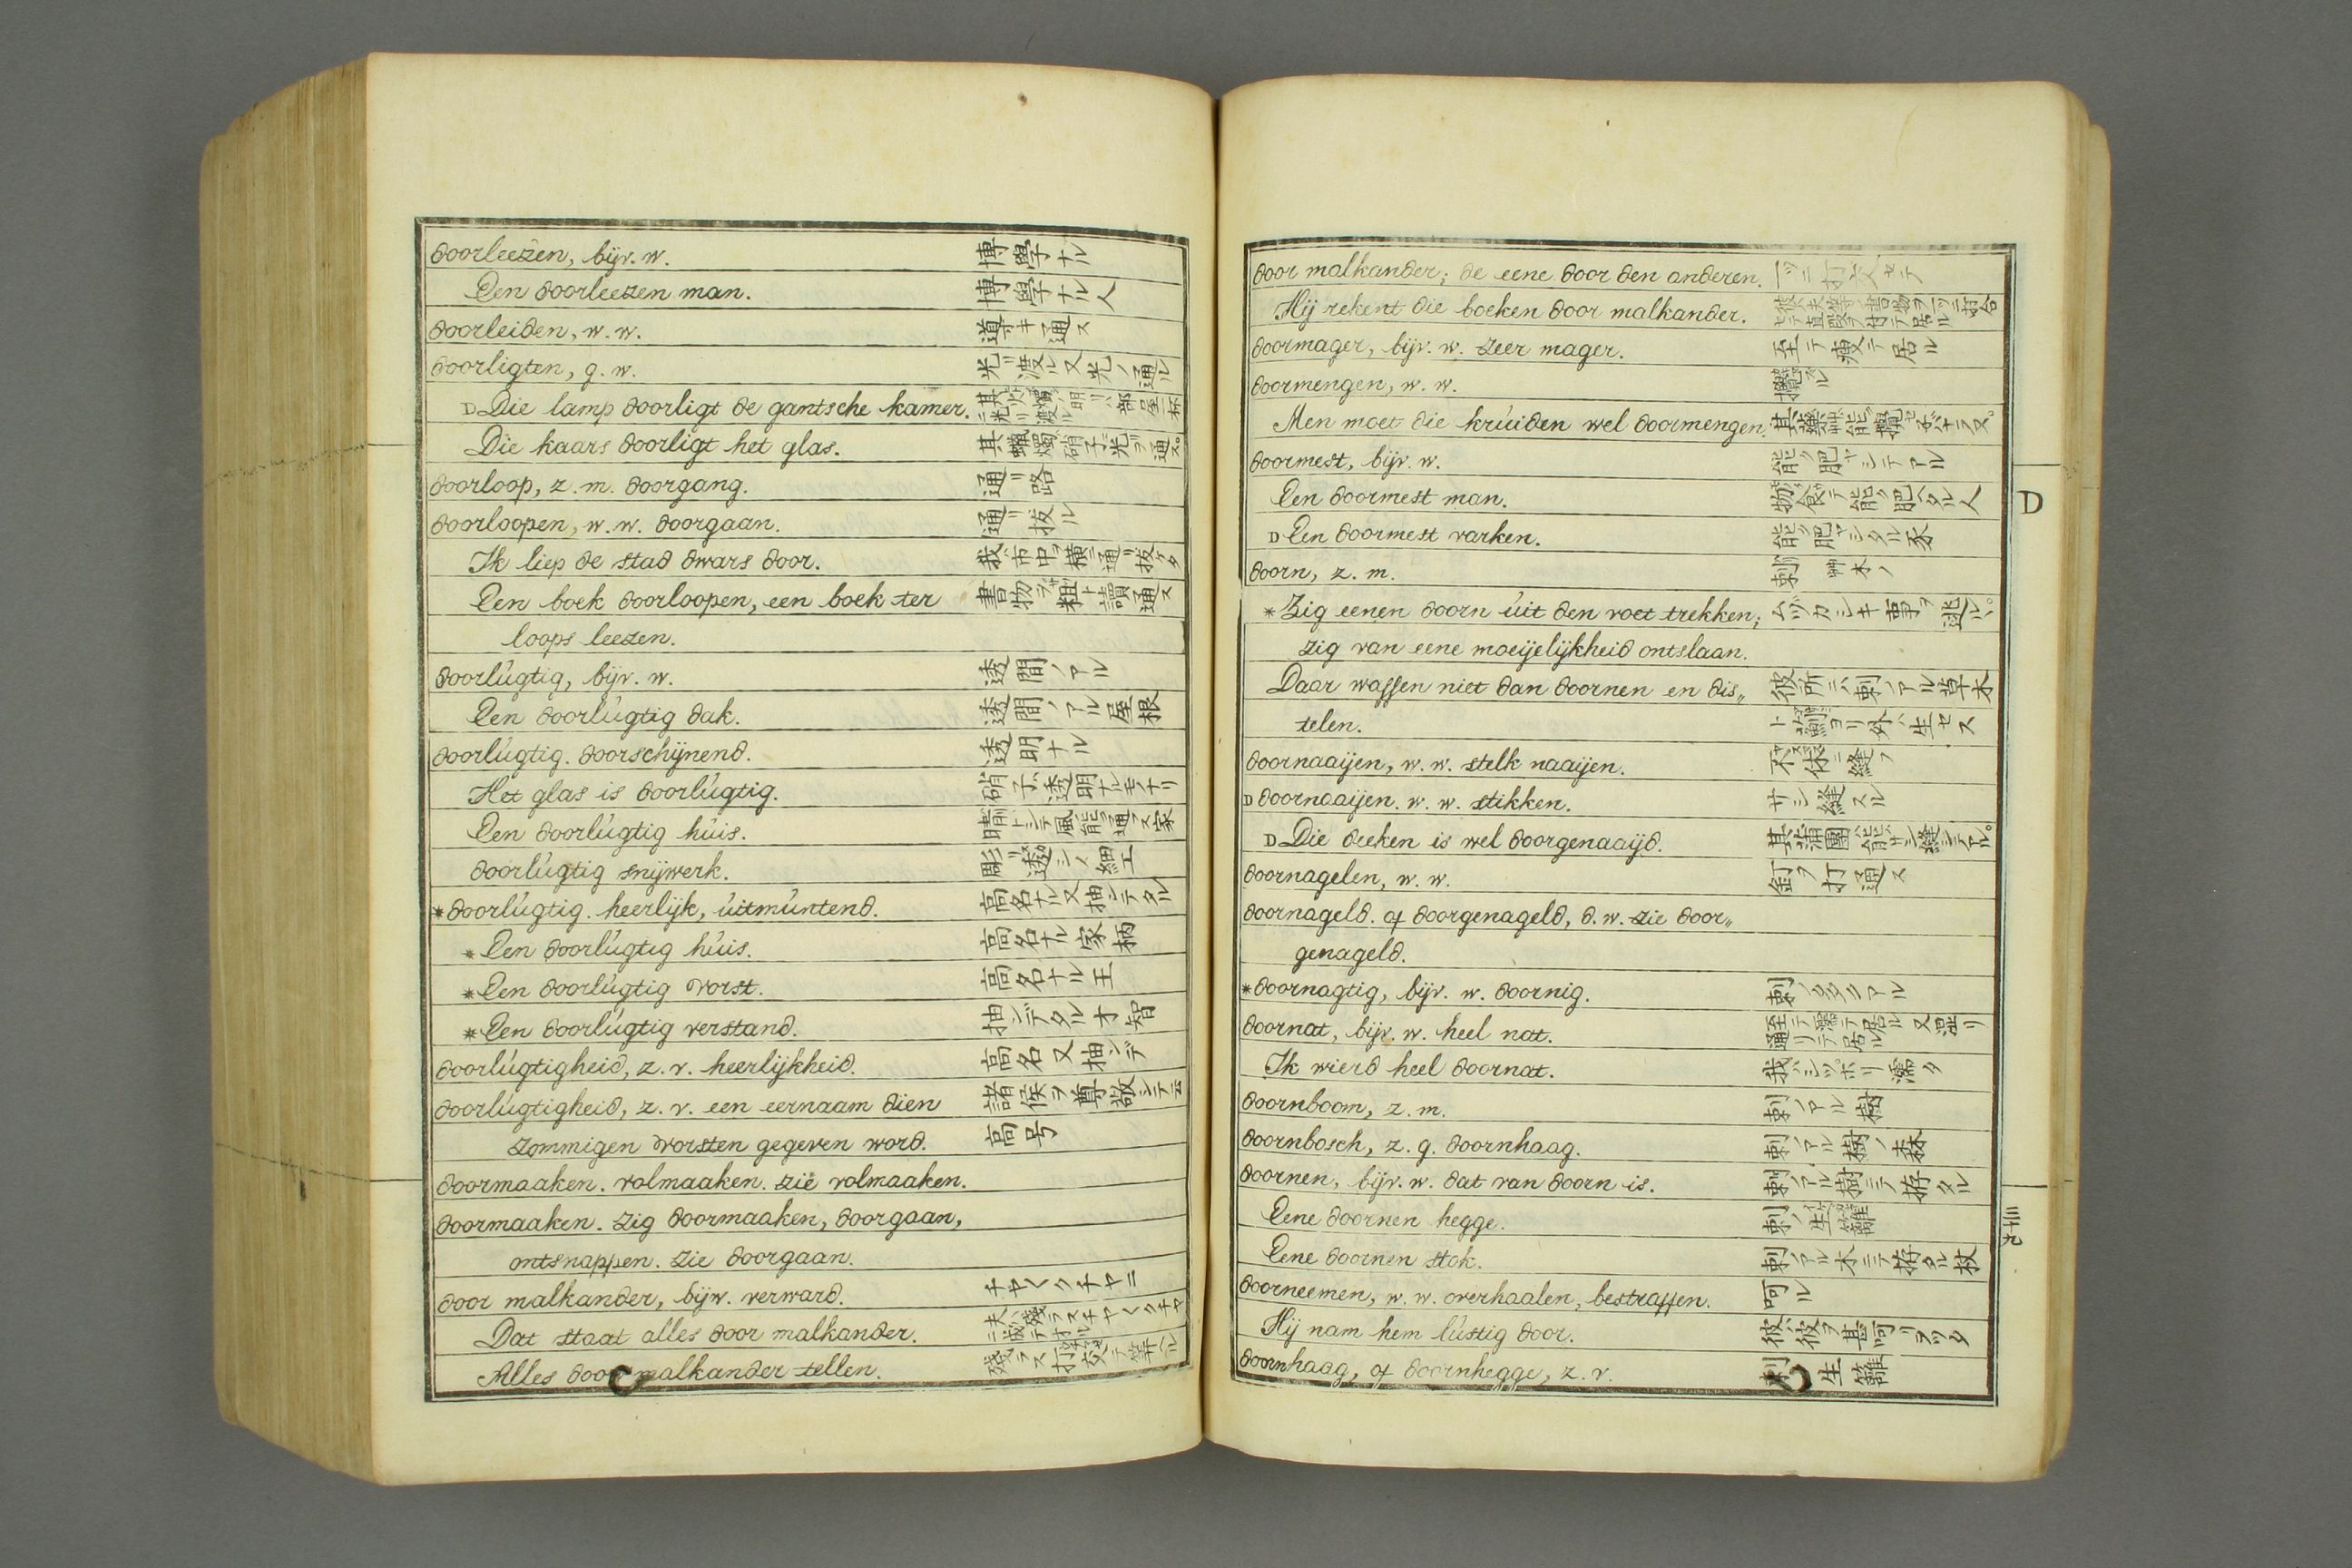 doorleezen, bijv. w. 博學ナル
Een doorleezen man. 博學ナル人
doorleiden, w. w. 導キ通ス
doorligten, g. w. 光リ渡ル又光ノ通ル
D Die lamp doorligt de gantsche kamer.
Die kaars doorligt het glas. 其蠟燭硝子光ヲ通ス。
doorloop, z. m. doorgang. 通リ路
doorloopen, w. w. doorgaan. 通リ抜ル
Ik liep de stad dwars door. 我市中ヲ横ニ通リ抜ケタ
Een boek doorloopen, een boek ter 書物ヲ粗ト讀通ス
loops leezen.
doorlúgtig, bijv. w. 透間ノアル
Een doorlúgtig dak. 透間ノアル屋根
doorlúgtig. doorschijnend. 透明ナル
Het glas is doorlúgtig. 硝子ハ透明ナルモノナリ
Een doorlúgtig húis.
doorlúgtig snijwerk. 彫リ透シノ細工
*doorlúgtig. heerlijk, úitmúntend. 高名ナル又抽ンデタル
*Een doorlúgtig húis. 高名ナル家柄
*Een doorlúgtig vorst. 高名ナル王
*Een doorlúgtig verstand. 抽ンデタル才智
doorlúgtigheid, z. v. heerlijkheid. 高名又抽ンデ
doorlúgtigheid, z. v. een eernaam dien 諸侯ヲ尊敬シテ云
zommigen vorsten gegeven word. 高号
doormaaken. volmaaken. zie volmaaken.
doormaaken. zig doormaaken, doorgaan,
ontsnappen. zie doorgaan.
door malkander, bijw. verward. チヤ〱クチヤニ
Dat staat alles door malkander.
Alles door malkander tellen. 殘ラス打交テ算ヘル
door malkander; de eene door den anderen. 一ツニ打交セテ
Hij rekent die boeken door malkander.
doormager, bijv. w. zeer mager. 至テ瘦テ居ル
doormengen, w. w. 攪セル
Men moet die krúiden wel doormengen.
doormest, bijv. w. 能ク肥ヤシテアル
Een doormest man. 物ヲ食テ能ク肥ヘタル人
D Een doormest varken. 能ク肥ヤシタル豕
doorn, z. m. 刺 艸木ノ
*Zig eenen doorn úit den voet trekken; ムツカシキ事ヲ逃ル。
zig van eene moeijelijkheid ontslaan.
Daar wassen niet dan doornen en dis„ 彼所ニハ刺ノアル草木
telen. ト薊ヨリ外ハ生セス
doornaaijen, w. w. stelk naaijen. 不休ニ縫フ
D doornaaijen. w. w. stikken. サシ縫スル
D Die deeken is wel doorgenaaijd. 其蒲團ハ能サシ縫シテアル。
doornagelen, w. w. 釘ヲ打通ス
doornageld. of doorgenageld, d. w. zie door„
genageld.
*doornagtig, bijv. w. doornig.
doornat, bijv. w. heel nat. 至テ濡テ居ル又湿リ通リテ居ル
Ik wierd heel doornat. 我ハシツホリ濡タ
doornboom, z. m. 刺ノアル樹
doornbosch, z. g. doornhaag. 刺ノアル樹ノ森
doornen, bijv. w. dat van doorn is. 刺ノアル樹ニテ拵タル
Eene doornen hegge. 刺ノ生籬
Eene doornen stok. 刺ノアル木ニテ拵タル杖
doorneemen, w. w. overhaalen, bestraffen. 呵ル
Hij nam hem lústig door. 彼ハ彼ヲ甚呵リヲツタ
doornhaag, of doornhegge, z. v. 刺ノ生籬
D
三十九